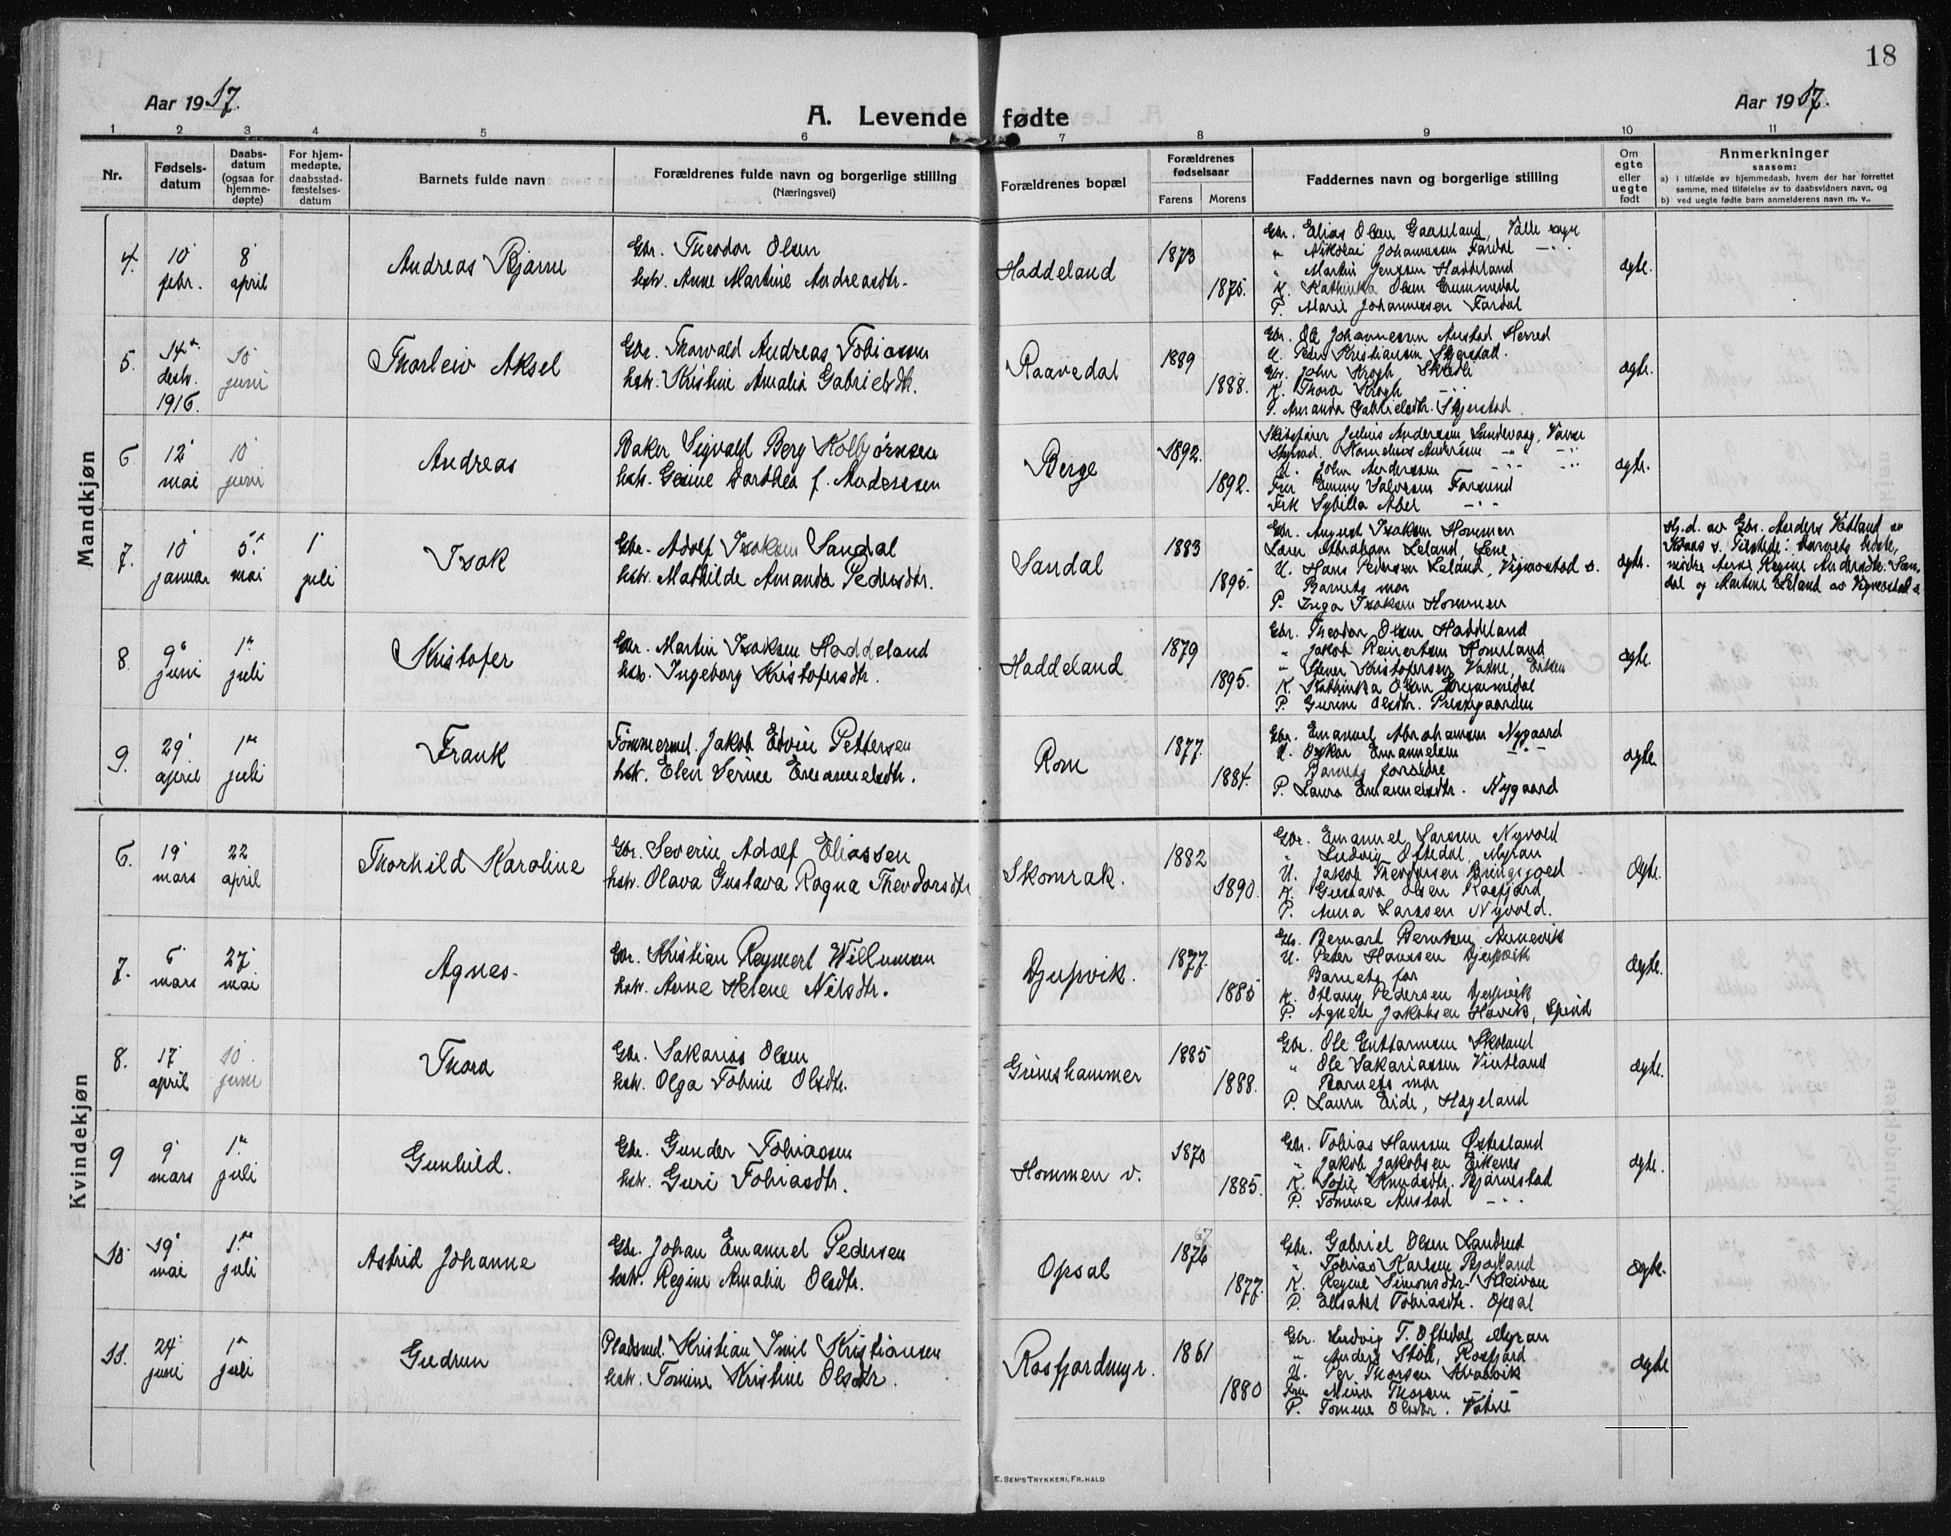 18
Aar 1917.
A. Levende fødte
Aar 1917.
1 2 3 4 5 6 7 8 9 10 11
Nr.
Fødsels-
datum
Daabs-
datum
(ogsaa for
hjemme-
døpte)
For hjem-
medøpte,
daabsstad-
fæstelses-
datum
Barnets fulde navn
Forældrenes fulde navn og borgerlige stilling
(Næringsvei)
Forældrenes bopæl
Forældrenes
fødselsaar
Farens Morens
Faddernes navn og borgerlige stilling
Om
egte
eller
uegte
født
Anmerkninger
saasom:
a) i tilfælde av hjemmedaab, hvem der har forrettet
samme, med tilføielse av to daabsvidners navn, og
b) ved uegte fødte barn anmelderens navn m. v..
Mandkjøn
4.
10
febr.
8
april
Andreas Bjarne
Gbr. Theodor Olsen
hstr. Anne Martine Andreasdtr.
Haddeland
1873
1875.
Gbr. Elias Olsen Gaaseland, Valle sogn
" Nikolai Johannessen Fardal
" Martin Jenssen Haddeland
K. Kathinka Olsen Grummedal
P. Marie Johannessen Fardal
ægte.
5.
14
desbr.
1916.
10
juni
Thorleiv Aksel
Gbr. Thorvald Andreas Tobiassen
hstr. Kristine Amalia Gabrielsdtr.
Raavedal
1889
1888.
Gbr. Ole Johannessen Austad Herred
U. Peder Kristiansen Skjerstad.
Gbr. John Krogh
K. Thora Krogh
P. Amanda Gabrielsdtr. Skjerstad.
ægte.
6
12
mai
10
juni
Andreas
Baker Sigvald Berg Kolbjørnsen
hstr. Gesine Dorthea f. Anderssen
Berge
1892.
1892.
Skibsfører Julius Anderssen
Kornelius Anderssen
U. John Anderssen
Fru Emmy Salvesen Farsund
Frk Sybilla Aber
ægte.
7.
10
januar
5.
mai
1
juli
Isak
Gbr. Adolf Isaksen Sandal
hstr. Mathilde Amanda Pedersdtr.
Sandal
1883
1895.
Gbr. August Isaksen Hommen
Lærer Abraham Leland, Lene
U. Hans Pedersen Leland, Vigmostad s.
Barnets mor
P. Inga Isaksen Hommen
ægte.
Hj.d. av Gbr. Anders
barnets
Regine Andersdtr. San-
dal og Martine Leland av Vigmostad s.
8.
9
juni
1
juli
Kristofer
Gbr. Martin Isaksen Haddeland
hstr. Ingeborg Kristofersdtr.
Haddeland
1879
1895.
Gbr. Theodor Olsen Haddeland
" Jakob Reinertsen Romeland
" Kristofersen Vatne,
K. Kathinka Olsen Grummedal
P. Gurine Olsdtr. Prestegaarden
ægte.
9.
29
april
1
juli
Frank
Tømmermd. Jakob Edvin Pettersen
hstr. Elen Serine Emanuelsdtr.
Rom
1877.
1884.
Gbr. Emanuel Abrahamsen Nygaard
U. Oskar Emanuelsen
Barnets forældre
P. Laura Emanuelsdtr. Nygaard
ægte.
Kvindekjøn
6.
19
mars
22
april
Thorhild Karoline
Gbr. Severin Adolf Eliassen
hstr. Olava Gustava Ragna Theodorsdtr
Skomrak.
1882
1890.
Gbr. Emanuel Larssen Nyvold
" Ludvig Oftedal, Myran
U. Jakob Theodorsen
K. Gustava Olsen Rosfjord
P. Anna Larssen Nyvold.
ægte.
7.
6
mars
27
mai
Agnes.
Gbr. Kristian Reymert Willumsen
hstr. Anne Helene Nilsdtr.
Djupvik.
1877.
1885
Gbr. Bernart Berntsen Aunevik
U. Peter Hanssen Djupvik
Barnets far
K. Otlany Pedersen Djupvik
P. Agnete Jakobsen Høvik, Spind
ægte.
8.
17
april
10
juni
Thora
Gbr. Sakarias Olsen
hstr. Olga Tobine Olsdtr.
Grimshammer
1885
1888.
Gbr. Ole Guttormsen Skoland
" Ole Sakariassen Vintland
Barnets mor
P. Laura Eide, Hægeland
ægte.
9
9
mars
1
juli
Gunhild.
Gbr. Gunder Tobiassen
hstr. Guri Tobiasdtr.
Hommen v.
1870
1885.
Gbr. Tobias Hanssen Østesland
" Jakob Jakobsen Eikenes
K. Sofie Knudsdtr. Bjørnestad
P. Tomine Austad
ægte.
10
19
mai
1
juli
Astrid Johanne
Gbr. Johan Emanuel Pedersen
hstr. Regine Amalia Olsdtr.
Opsal
1876
1877.
Gbr. Gabriel Olsen Landrud
" Tobias Karlsen Bjoland
K. Regine Simonsdtr. Kleivan
P. Elisabet Tobiasdtr. Opsal
ægte.
11.
24
juni
1
juli
Gudrun
Pladsmd. Kristian Imil Kristiansen
hstr. Tomine Kristine Olsdtr.
Rosfjordmyr.
1861
1880
Gbr. Ludvig T. Oftedal Myran
" Anders Støle, Rosfjord
U. Per Thorsen Kvavik
Fru Mina Thorsen
P. Tomine Olsdtr. Vatne
ægte
E. SEM'S TRYKKERI, FR.HALD